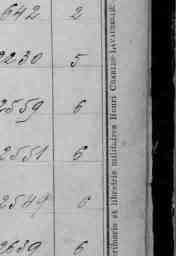 642 2
2230 5
2559 6
2551 6
2549 0
2639 6
militaires Henri CHARLES-LAVAUZELLE
et librairie